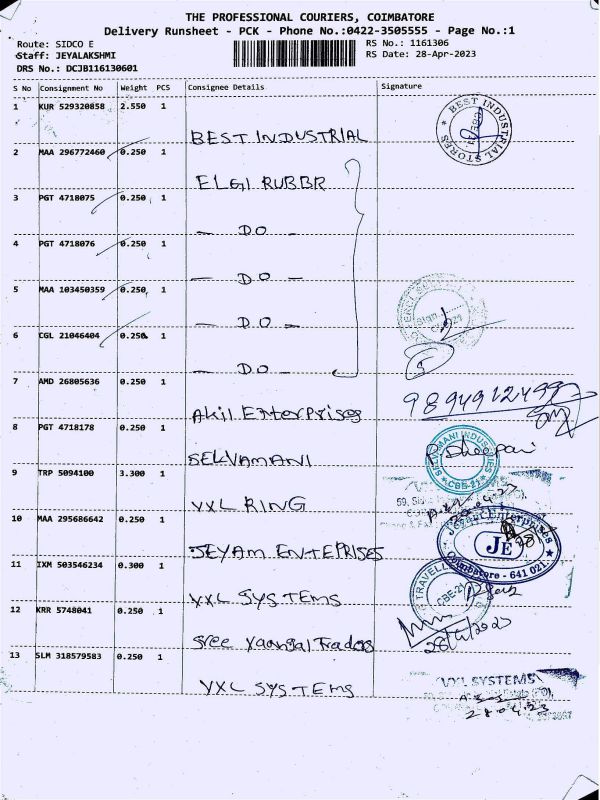 THE PROFESSIONAL COURIERS, COIMBATORE
Delivery Runsheet - PCK - Phone No.:0422-3505555 - Page No.:1
Route: SIDCO E RS No.: 1161306
Staff: JEYALAKSHMI RS Date: 28-Apr-2023
DRS No.: DCJB116130601
S No Consignment No Weight PCS Consignee Details Signature
1 KUR 529320858 2.550 1
BEST INDUSTRIAL
BEST INDUSTRIAL STORES
2 MAA 296772460 0.250 1
ELGI RUBBR
3 PGT 4718075 0.250 1
— DO —
4 PGT 4718076 0.250 1
— DO —
5 MAA 103450359 0.250 1
— DO —
6 CGL 21046404 0.250 1
— DO —
5
7 AMD 26805636 0.250 1
Akil Enterprises
9894912499
8 PGT 4718178 0.250 1
SELVAMANI
CBE-21
9 TRP 5094100 3.300 1
VXL RING
10 MAA 295686642 0.250 1
JEYAM ENTEPRISES
Jeyam Enterprises
JE
Coimbatore - 641 021.
11 IXM 503546234 0.300 1
VXL SYSTEMS
12 KRR 5748041 0.250 1
Sree Yaangal Traders
TRAVELL
CBE-2
28/4/2023
13 SLM 318579583 0.250 1
VXL SYSTEMS
VXL SYSTEMS
28.04.23